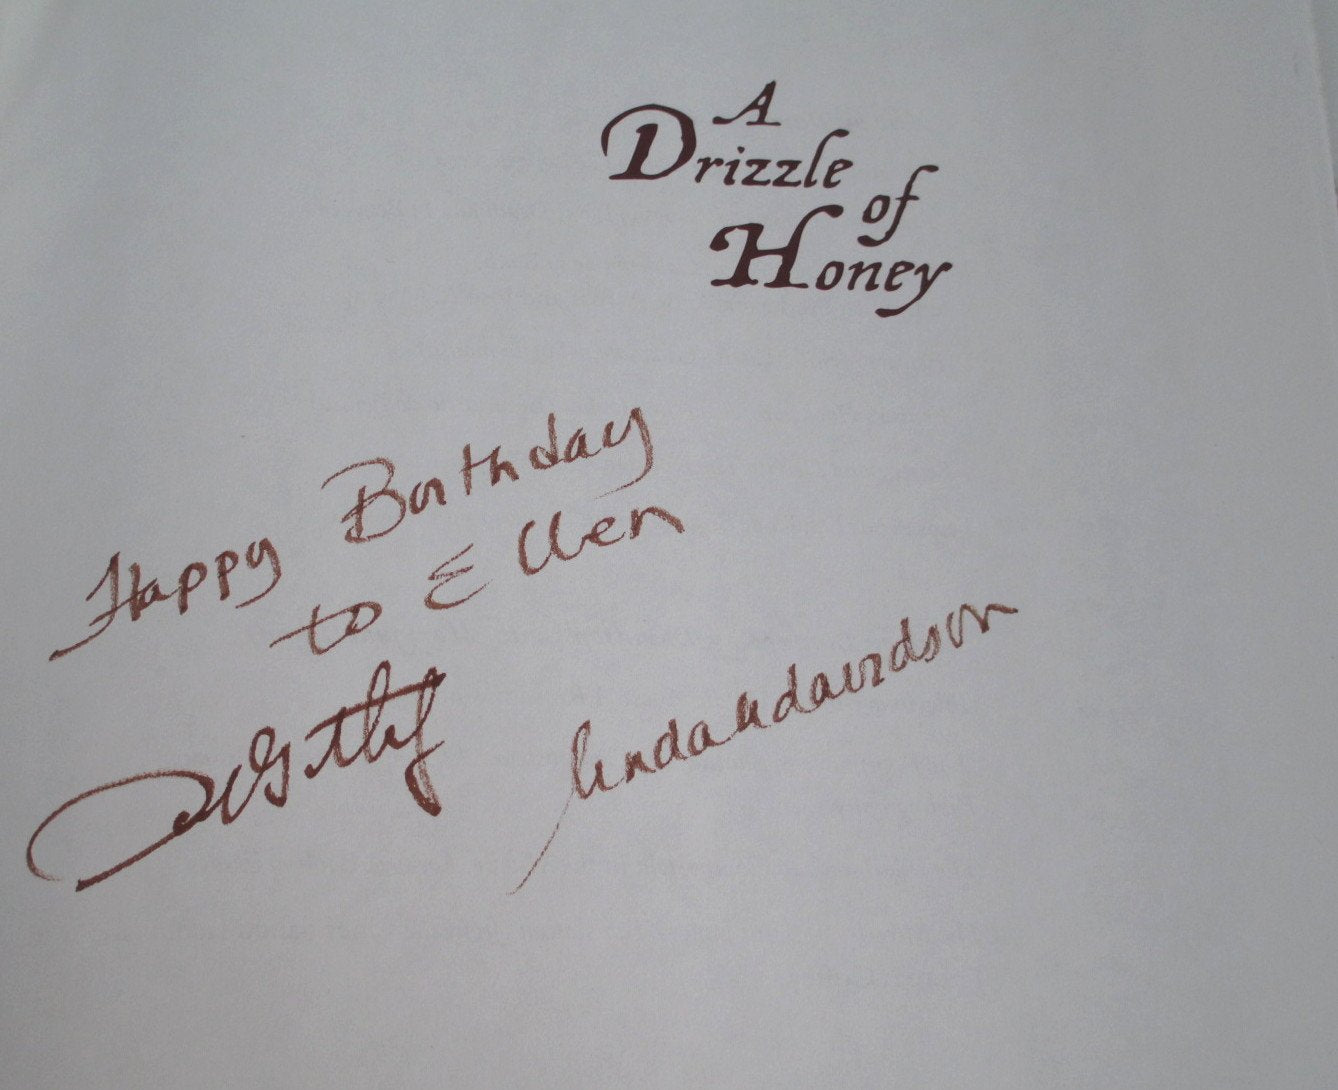 A
Drizzle
of
Honey
Happy Birthday
to Ellen
lindakdavidson